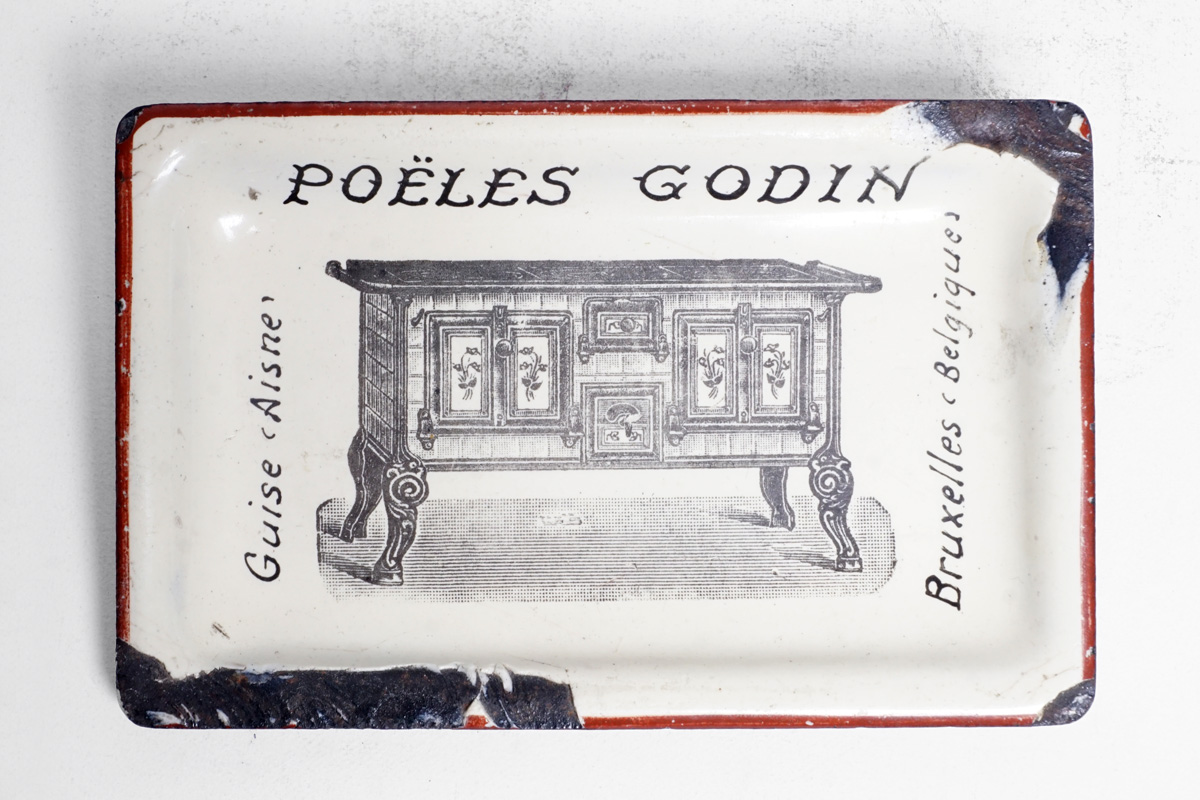 POËLES GODIN
Guise (Aisne)
Bruxelles (Belgique)